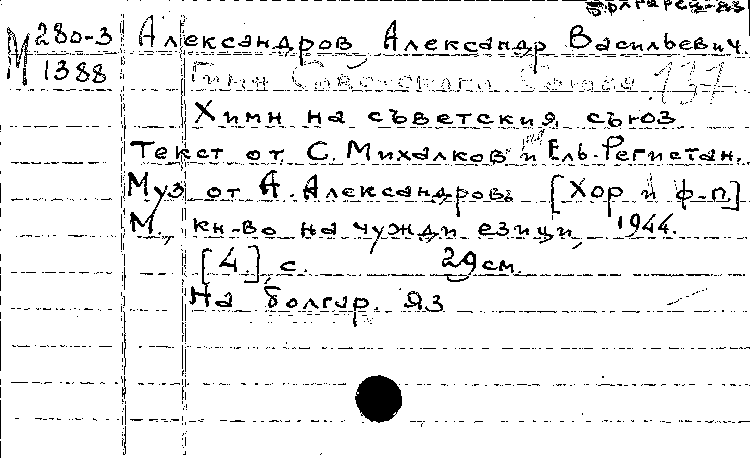 Болгарск-яз
М 280-3
1388
Александров, Александр Васильевич.
Гимн Советского Союза 131
Химн на съветския съюз
Текст от С. Михалков и Ель-Регистан.
Муз от А. Александров. [Хор и ф-п.]
М., кн-во на чужди езици, 1944.
[4] с. 29 см.
На болгар. яз